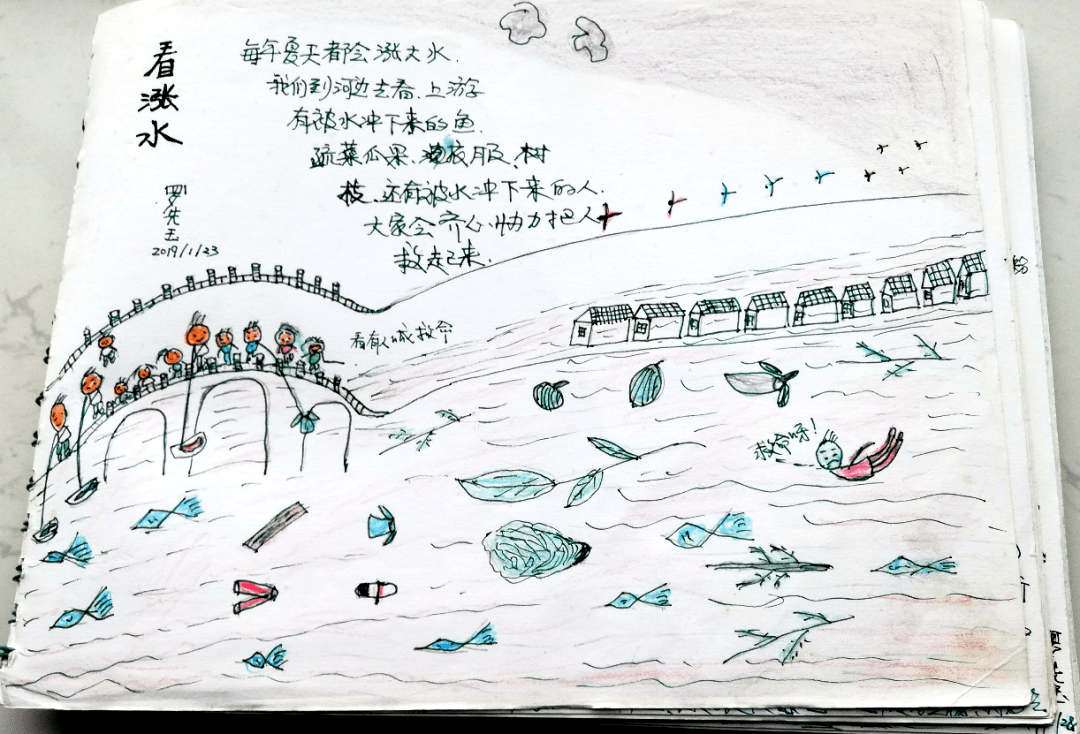 看涨水
罗先玉
2019/1/23
每年夏天都会涨大水.
我们到河边去看.上游
有被水冲下来的鱼.
蔬菜瓜果、衣服、树
枝.还有被水冲下来的人.
大家会齐心协力把人
救起来.
看有人喊救命
救命呀!